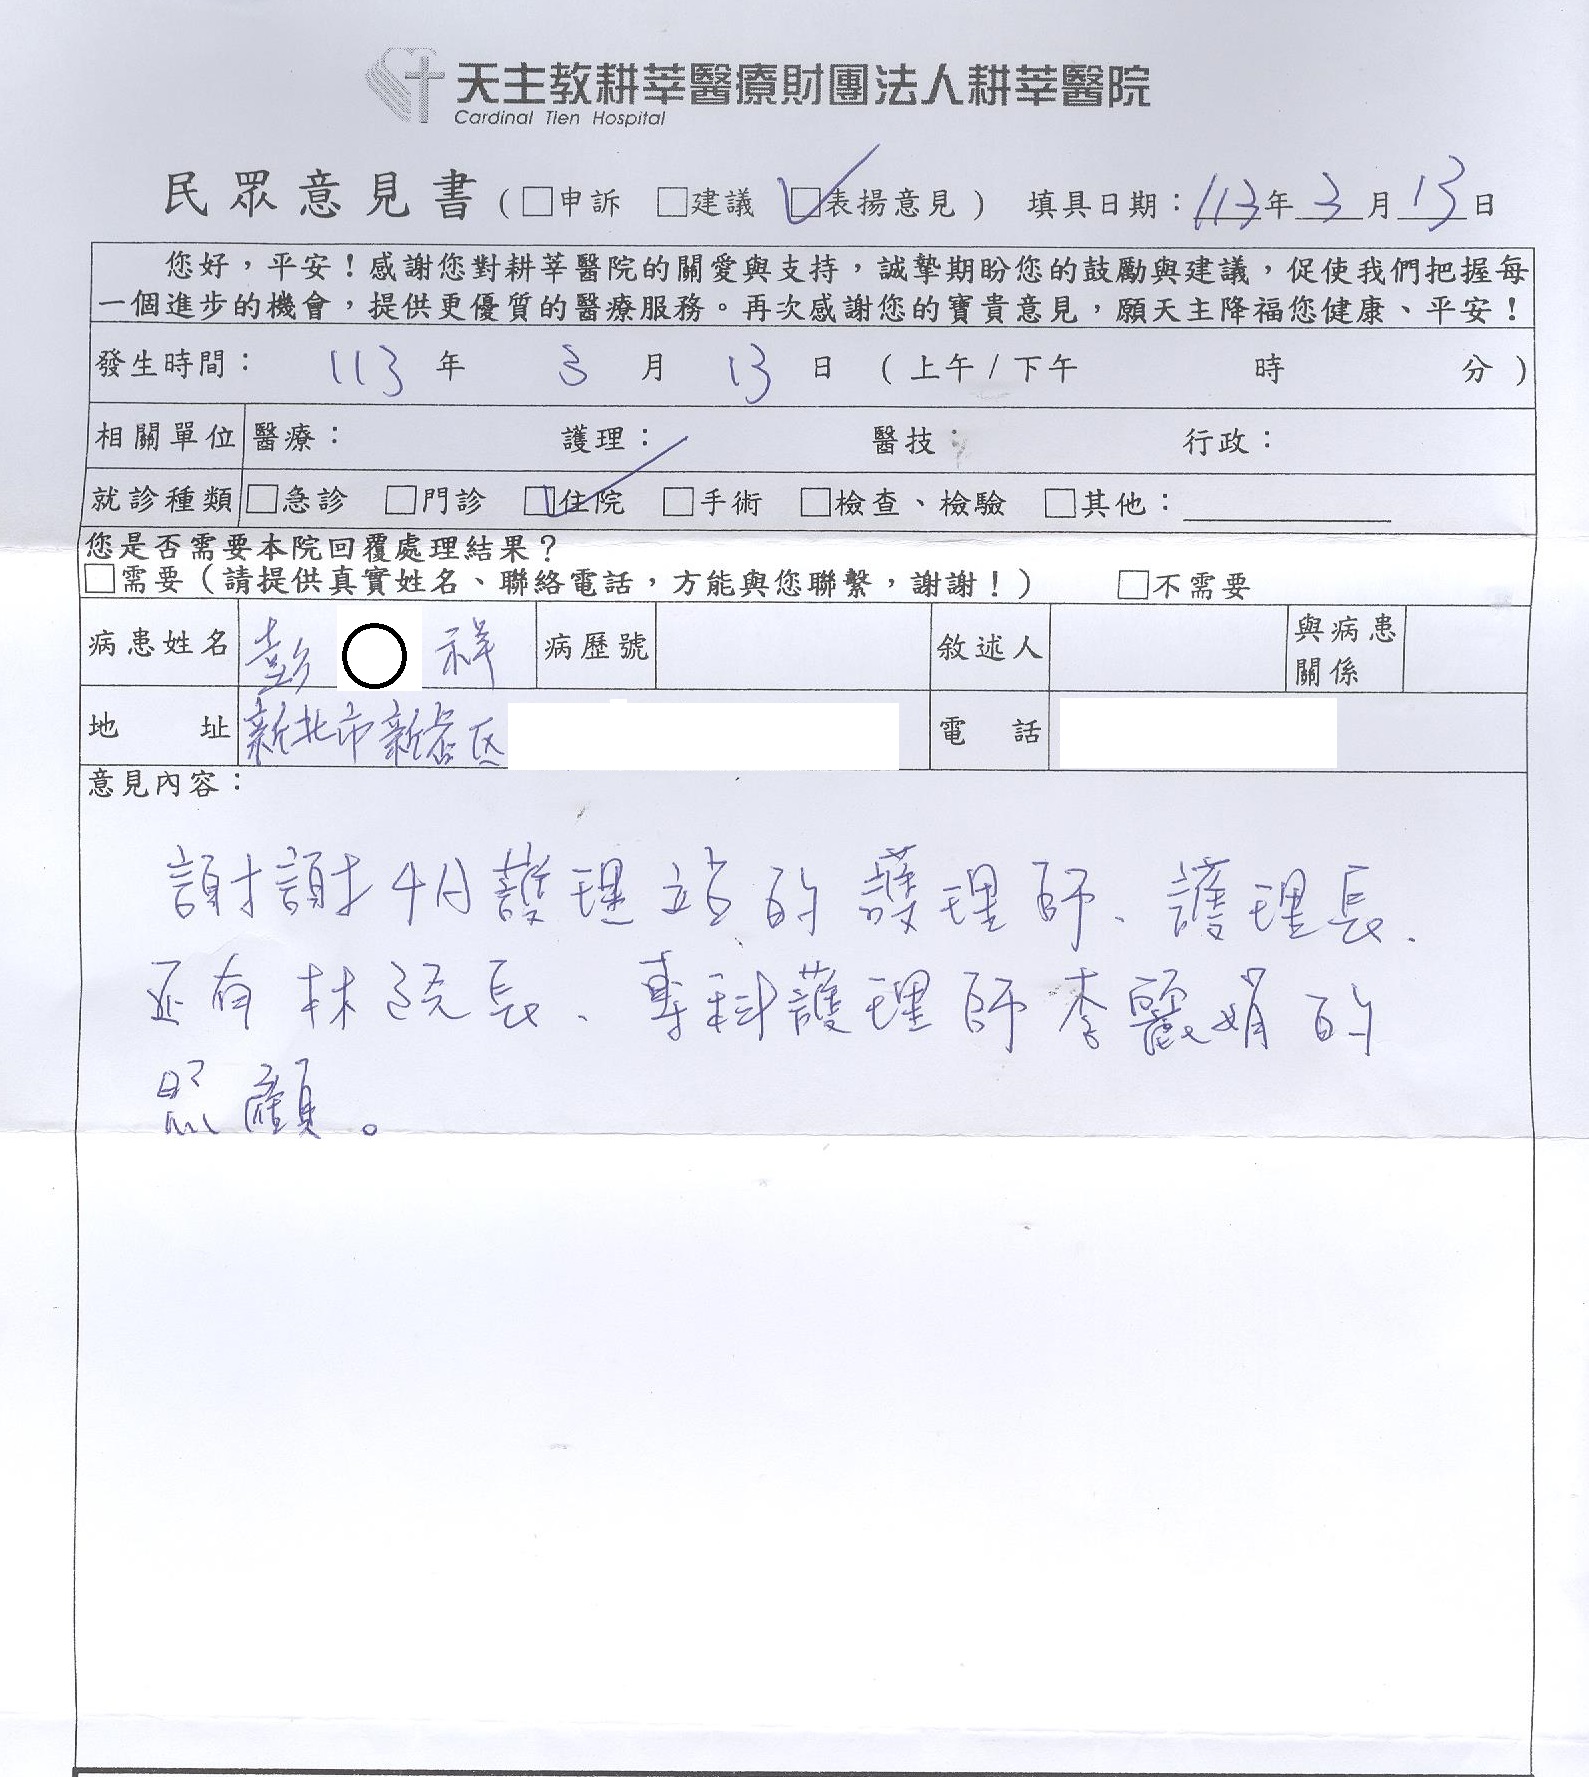 天主教耕莘醫療財團法人耕莘醫院
Cardinal Tien Hospital
民眾意見書(□申訴 □建議 ☑表揚意見) 填具日期:113年3月13日
您好,平安!感謝您對耕莘醫院的關愛與支持,誠摯期盼您的鼓勵與建議,促使我們把握每
一個進步的機會,提供更優質的醫療服務。再次感謝您的寶貴意見,願天主降福您健康、平安!
發生時間: 113 年 3 月 13 日 (上午/下午 時 分)
相關單位 醫療: 護理: 醫技: 行政:
就診種類 □急診 □門診 ☑住院 □手術 □檢查、檢驗 □其他:
您是否需要本院回覆處理結果?
□需要(請提供真實姓名、聯絡電話,方能與您聯繫,謝謝!) □不需要
病患姓名 彭○祥 病歷號 敘述人 與病患關係
地址 新北市新店区 電話
意見內容:
謝謝4A護理站的護理師、護理長、
还有林院長、專科護理師李麗娟的
照顧。